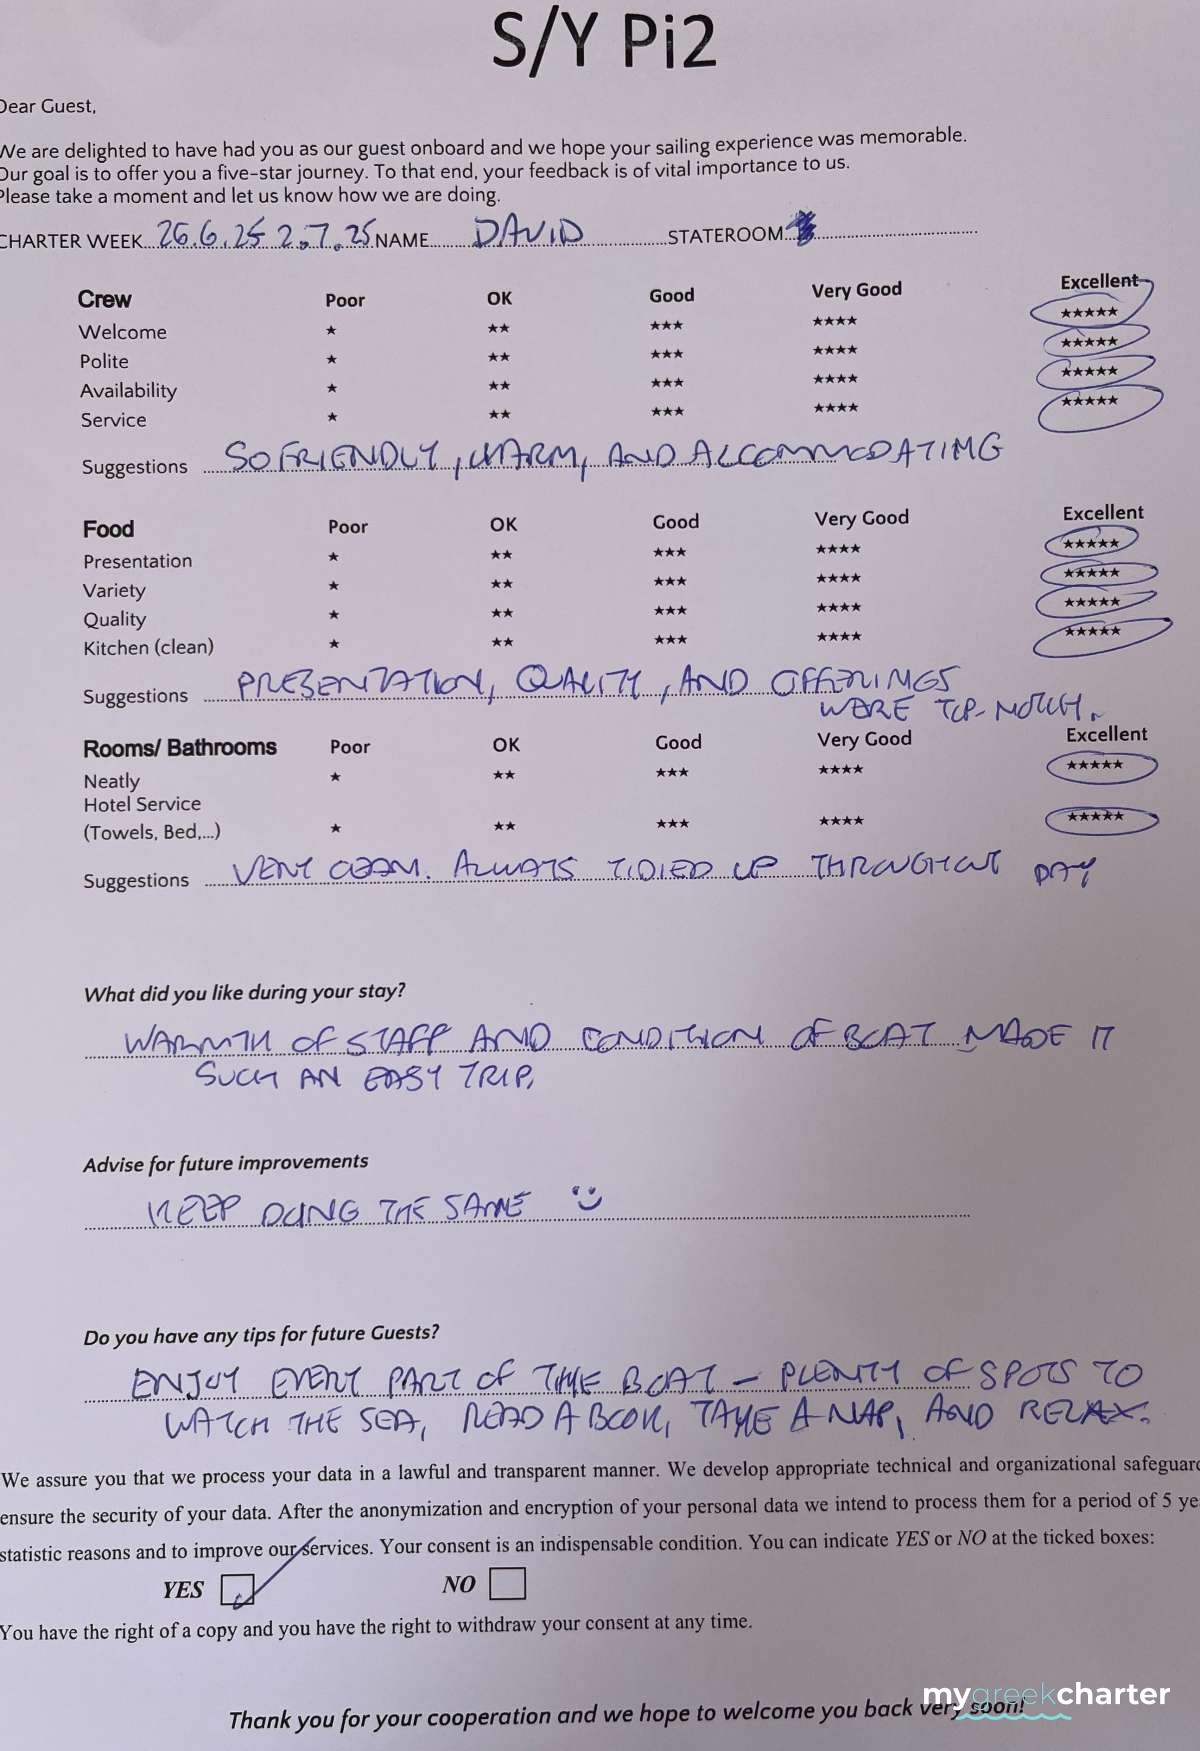 S/Y Pi2
Dear Guest,
We are delighted to have had you as our guest onboard and we hope your sailing experience was memorable.
Our goal is to offer you a five-star journey. To that end, your feedback is of vital importance to us.
Please take a moment and let us know how we are doing.
CHARTER WEEK 26.6.25 2.7.25 NAME DAVID STATEROOM
Crew Poor OK Good Very Good Excellent
Welcome ★ ★★ ★★★ ★★★★ ★★★★★
Polite ★ ★★ ★★★ ★★★★ ★★★★★
Availability ★ ★★ ★★★ ★★★★ ★★★★★
Service ★ ★★ ★★★ ★★★★ ★★★★★
Suggestions SO FRIENDLY, WARM, AND ACCOMMODATING
Food Poor OK Good Very Good Excellent
Presentation ★ ★★ ★★★ ★★★★ ★★★★★
Variety ★ ★★ ★★★ ★★★★ ★★★★★
Quality ★ ★★ ★★★ ★★★★ ★★★★★
Kitchen (clean) ★ ★★ ★★★ ★★★★ ★★★★★
Suggestions PRESENTATION, QUALITY, AND OFFERINGS
WERE TOP-NOTCH.
Rooms/ Bathrooms Poor OK Good Very Good Excellent
Neatly ★ ★★ ★★★ ★★★★ ★★★★★
Hotel Service
(Towels, Bed,...) ★ ★★ ★★★ ★★★★ ★★★★★
Suggestions VERY CLEAN. ALWAYS TIDIED UP THROUGHOUT DAY
What did you like during your stay?
WARMTH OF STAFF AND CONDITION OF BOAT MADE IT
SUCH AN EASY TRIP.
Advise for future improvements
KEEP DOING THE SAME
Do you have any tips for future Guests?
ENJOY EVERY PART OF THE BOAT – PLENTY OF SPOTS TO
WATCH THE SEA, READ A BOOK, TAKE A NAP, AND RELAX.
We assure you that we process your data in a lawful and transparent manner. We develop appropriate technical and organizational safeguar
ensure the security of your data. After the anonymization and encryption of your personal data we intend to process them for a period of 5 ye
statistic reasons and to improve our services. Your consent is an indispensable condition. You can indicate YES or NO at the ticked boxes:
YES NO
You have the right of a copy and you have the right to withdraw your consent at any time.
mygreekcharter
Thank you for your cooperation and we hope to welcome you back very soon!